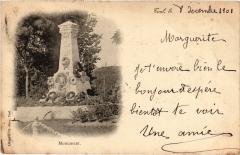 Toul le 8 décembre 1901
Marguerite
je t'envoie bien le
bonjour et espère
bientôt te voir
Une amie
Monument.